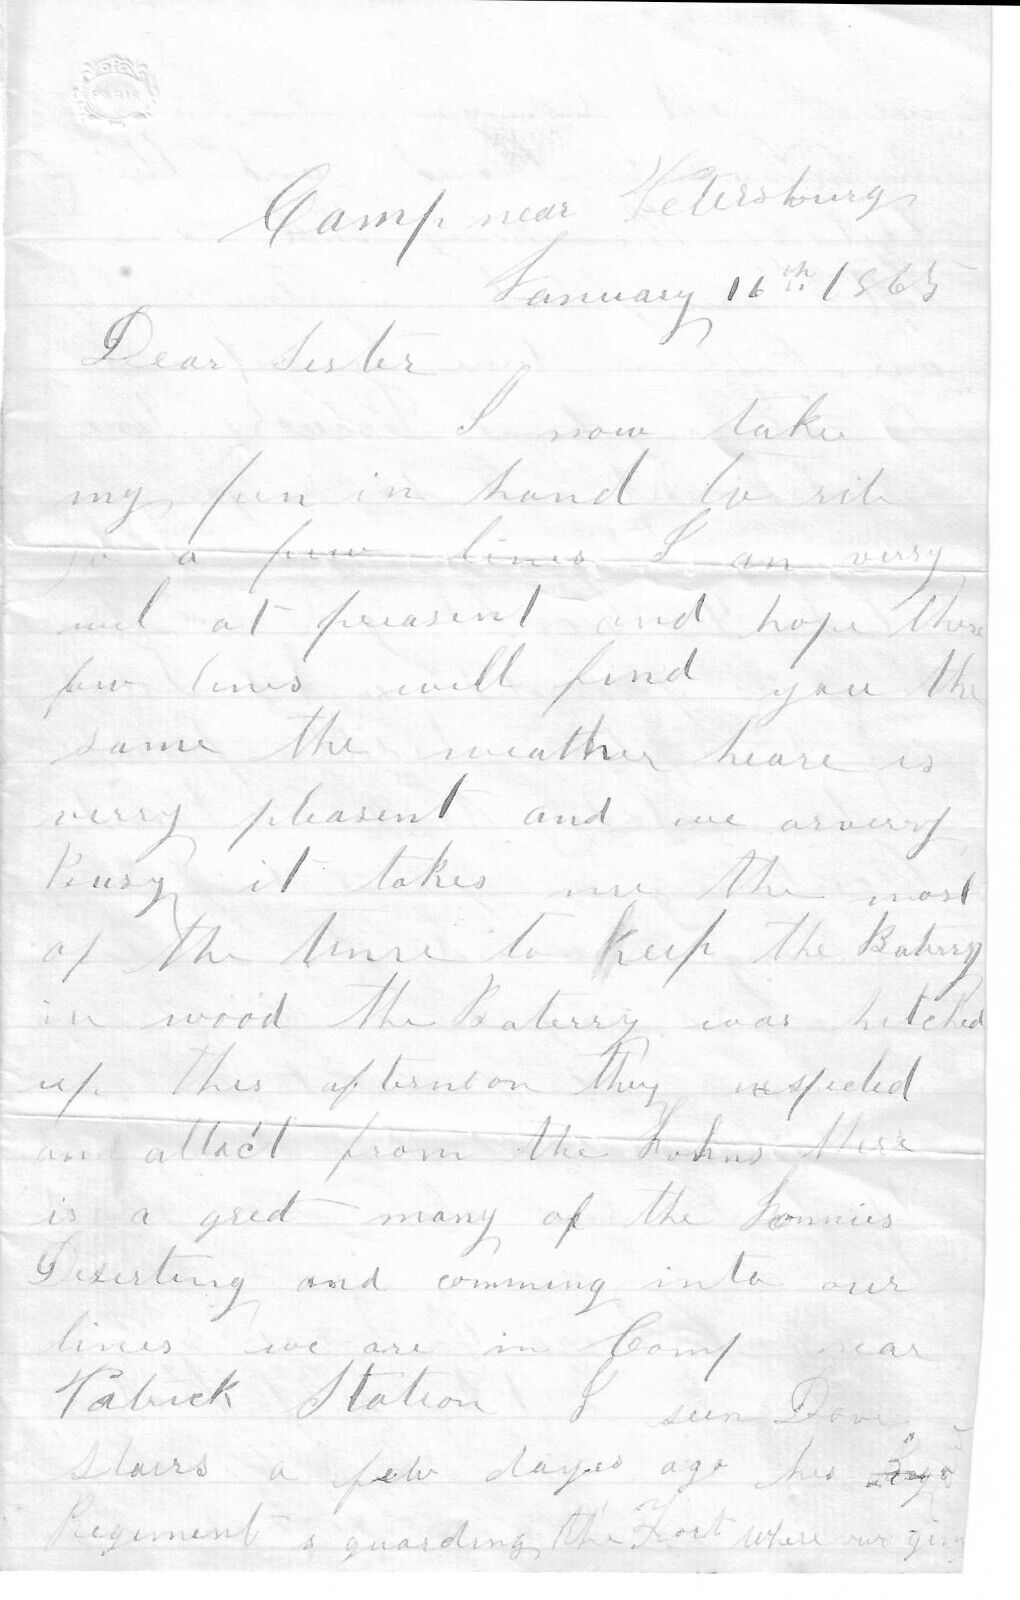 PARIS
Camp near Petersburg
January 16th 1865
Dear Sister
I now take
my pen in hand to rit
yo a few lines I an verry
wel at preasent and hope these
few lines will find you the
same the weather heare is
verry pleasent and we ar verry
Busy it takes me the most
of the time to keep the Baterry
in wood the Baterry was hitched
up this afternoon they expected
an attact from the Johns there
is a gret many of the Jonnies
Diserting and comming into our
lines we are in Camp near
Patrick Station I seen Dave
Stairs a few dayes ago his
Regiment is guarding the Fort where our gun